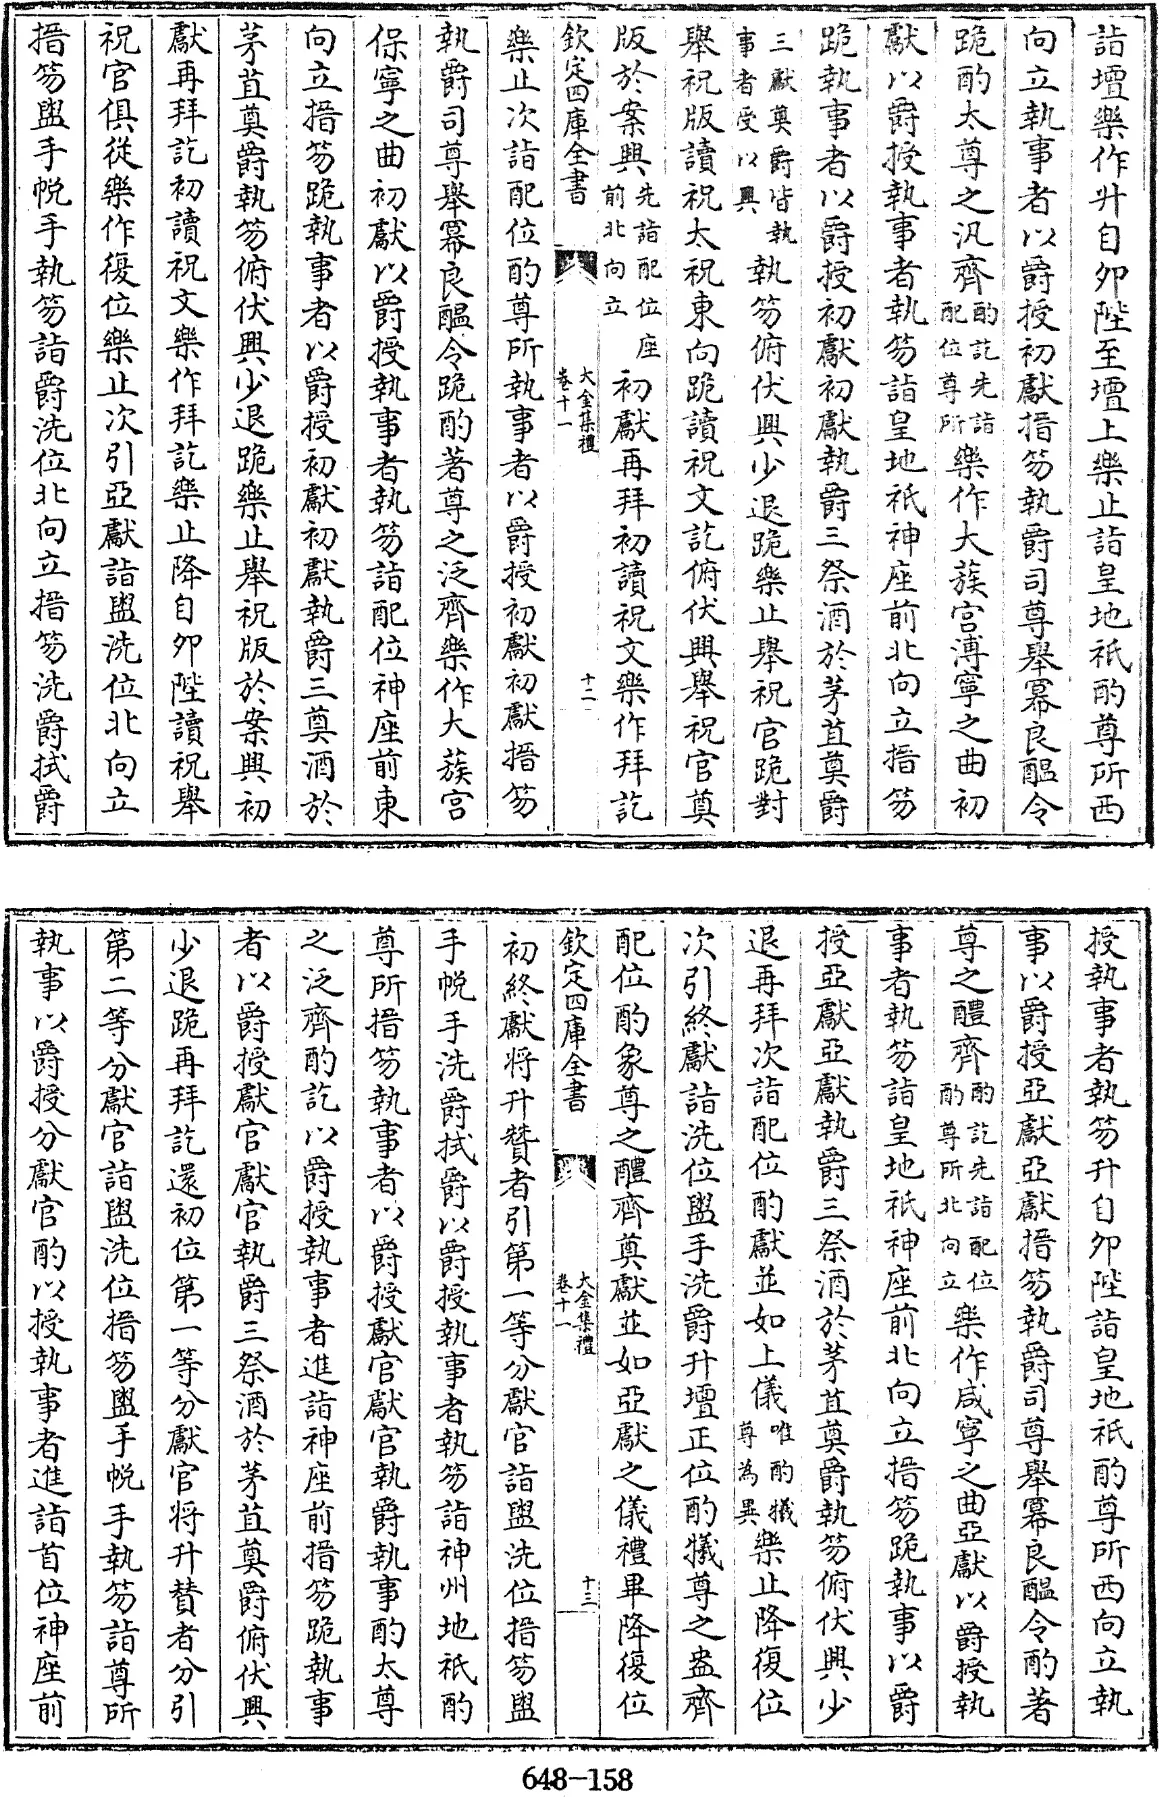 詣壇樂作升自卯陛至壇上樂止詣皇地祇酌尊所西
向立執事者以爵授初獻搢笏執爵司尊舉冪良醞令
跪酌太尊之汎齊酌訖先詣配位尊所樂作大蔟宮溥寧之曲初
獻以爵授執事者執笏詣皇地祇神座前北向立搢笏
跪執事者以爵授初獻初獻執爵三祭酒於茅苴奠爵
三獻奠爵皆執事者受以興執笏俯伏興少退跪樂止舉祝官跪對
舉祝版讀祝太祝東向跪讀祝文訖俯伏興舉祝官奠
版於案興先詣配位座前北向立初獻再拜初讀祝文樂作拜訖
欽定四庫全書 大金集禮卷十一 十二
樂止次詣配位酌尊所執事者以爵授初獻初獻搢笏
執爵司尊舉冪良醞令跪酌著尊之泛齊樂作大蔟宮
保寧之曲初獻以爵授執事者執笏詣配位神座前東
向立搢笏跪執事者以爵授初獻初獻執爵三奠酒於
茅苴奠爵執笏俯伏興少退跪樂止舉祝版於案興初
獻再拜訖初讀祝文樂作拜訖樂止降自卯陛讀祝舉
祝官俱從樂作復位樂止次引亞獻詣盥洗位北向立
搢笏盥手帨手執笏詣爵洗位北向立搢笏洗爵拭爵
授執事者執笏升自卯陛詣皇地祇酌尊所西向立執
事以爵授亞獻亞獻搢笏執爵司尊舉冪良醞令酌著
尊之醴齊酌訖先詣配位酌尊所北向立樂作咸寧之曲亞獻以爵授執
事者執笏詣皇地祇神座前北向立搢笏跪執事以爵
授亞獻亞獻執爵三祭酒於茅苴奠爵執笏俯伏興少
退再拜次詣配位酌獻並如上儀唯酌犧尊為異樂止降復位
次引終獻詣洗位盥手洗爵升壇正位酌犧尊之盎齊
配位酌象尊之醴齊奠獻並如亞獻之儀禮畢降復位
欽定四庫全書 大金集禮卷十一 十三
初終獻將升贊者引第一等分獻官詣盥洗位搢笏盥
手帨手洗爵拭爵以爵授執事者執笏詣神州地祇酌
尊所搢笏執事者以爵授獻官獻官執爵執事酌太尊
之泛齊酌訖以爵授執事者進詣神座前搢笏跪執事
者以爵授獻官獻官執爵三祭酒於茅苴奠爵俯伏興
少退跪再拜訖還初位第一等分獻官將升贊者分引
第二等分獻官詣盥洗位搢笏盥手帨手執笏詣尊所
執事以爵授分獻官酌以授執事者進詣首位神座前
648-158